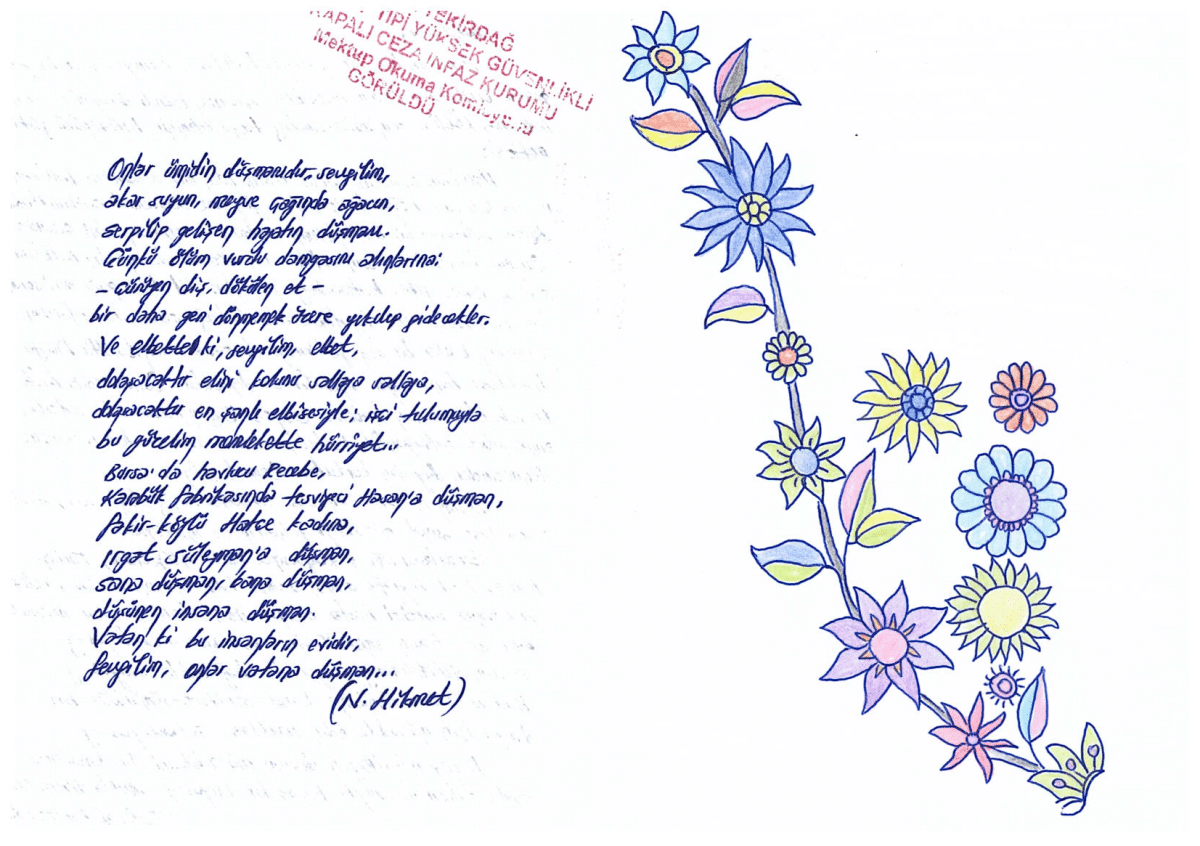 TEKİRDAĞ
TİPİ YÜKSEK GÜVENLİKLİ
KAPALI CEZA İNFAZ KURUMU
Mektup Okuma Komisyonu
GÖRÜLDÜ
Onlar ümidin düşmanıdır, sevgilim,
akar suyun, meyve çağında ağacın,
serpilip gelişen hayatın düşmanı.
Çünkü ölüm vurdu damgasını alınlarına:
- çürüyen diş, dökülen et -
bir daha geri dönmemek üzere yıkılıp gidecekler.
Ve elbette ki, sevgilim, elbet,
dolaşacaktır elini kolunu sallaya sallaya,
dolaşacaktır en şanlı elbisesiyle; işçi tulumuyla
bu güzelim memlekette hürriyet...
Bursa'da havlucu Recebe,
Karabük fabrikasında tesviyeci Hasan'a düşman,
fakir-köylü Hatçe kadına,
ırgat Süleyman'a düşman,
sana düşman, bana düşman,
düşünen insana düşman.
Vatan ki bu insanların evidir,
Sevgilim, onlar vatana düşman...
(N. Hikmet)